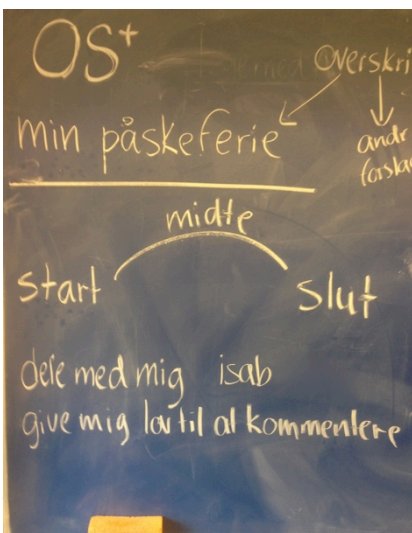 OS+
Overskri
min påskeferie
andr
forslag
midte
start
slut
dele med mig isab
give mig lov til at kommentere